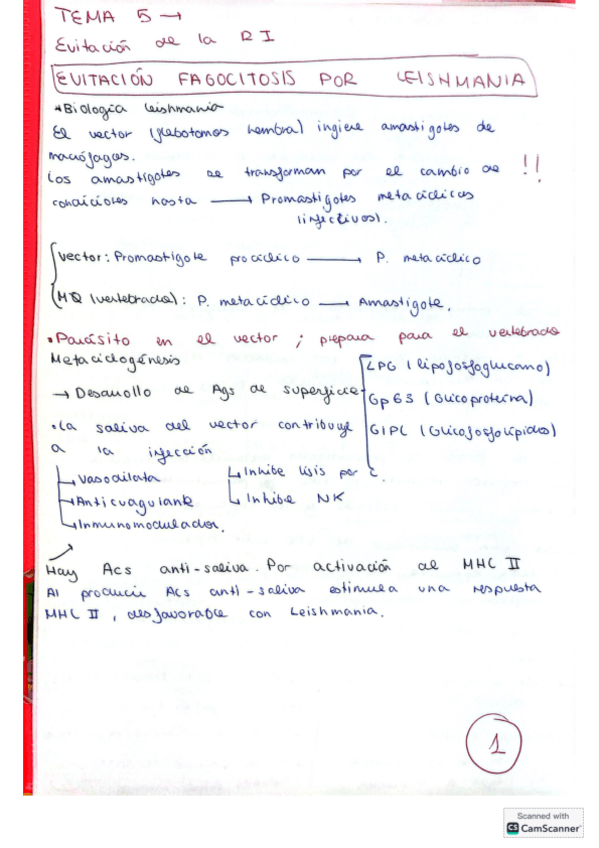 TEMA 5 →
Evitación de la RI
EVITACIÓN FAGOCITOSIS POR LEISHMANIA
*Biología leishmania
El vector (flebotomos hembra) ingiere amastigotes de
macrófagos.
Los amastigotes se transforman por el cambio de !!
condiciones hasta → Promastigotes metacíclicos
(infectivos).
vector: Promastigote procíclico → P. metacíclico
(MØ (vertebrado): P. metacíclico → Amastigote.
• Parásito en el vector ; prepara para el vertebrado
Metaciclogénesis
→ Desarrollo de Ags de superficie
LPG (lipofosfoglucano)
Gp63 (Glicoproteína)
GIPL (Glicofosfolípidos)
• La saliva del vector contribuye
a la infección
↳ Vasodilata
→ Anticuagulante
↳ Inmunomodulador.
↳ Inhibe lisis por C.
↳ Inhibe NK
Hay Acs anti-saliva. Por activación del MHC II
Al producir Acs anti-saliva estimula una respuesta
MHC II, desfavorable con Leishmania.
1
Scanned with
CS CamScanner